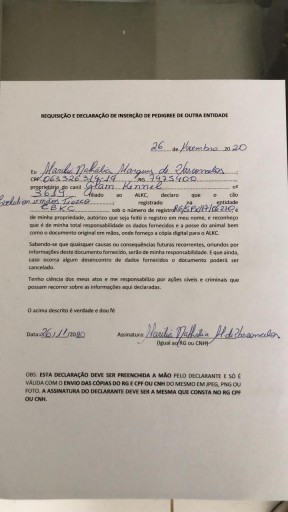 REQUISIÇÃO E DECLARAÇÃO DE INSERÇÃO DE PEDIGREE DE OUTRA ENTIDADE
26 de Novembro 2020
Eu Marilia Nathalia Marques de Vasconcelos
CPF 063326319-19 RG 7973400
proprietário do canil Glam Kennel nº
3619 filiado ao ALKC, declaro que o cão
registrado na entidade
CBKC sob o número de registro
de minha propriedade, autorizo que seja feito o registro em meu nome, e reconheço
que é de minha total responsabilidade os dados fornecidos e a posse do animal bem
como o documento original em mãos, onde forneço a cópia digital para o ALKC.
Sabendo-se que quaisquer causas ou consequências futuras recorrentes, oriundos por
informações deste documento fornecido, serão de minha responsabilidade. E que ainda,
caso ocorra algum desencontro de dados fornecidos o documento poderá ser
cancelado.
Tenho ciência dos meus atos e me responsabilizo por ações cíveis e criminais que
possam recorrer sobre as informações aqui declaradas.
O acima descrito é verdade e dou fé
Data: 26/11/2020 Assinatura: Marilia Nathalia M de Vasconcelos
(Igual ao RG ou CNH)
OBS: ESTA DECLARAÇÃO DEVE SER PREENCHIDA A MÃO PELO DECLARANTE E SÓ É
VÁLIDA COM O ENVIO DAS CÓPIAS DO RG E CPF OU CNH DO MESMO EM JPEG, PNG OU
FOTO. A ASSINATURA DO DECLARANTE DEVE SER A MESMA QUE CONSTA NO RG CPF
OU CNH.